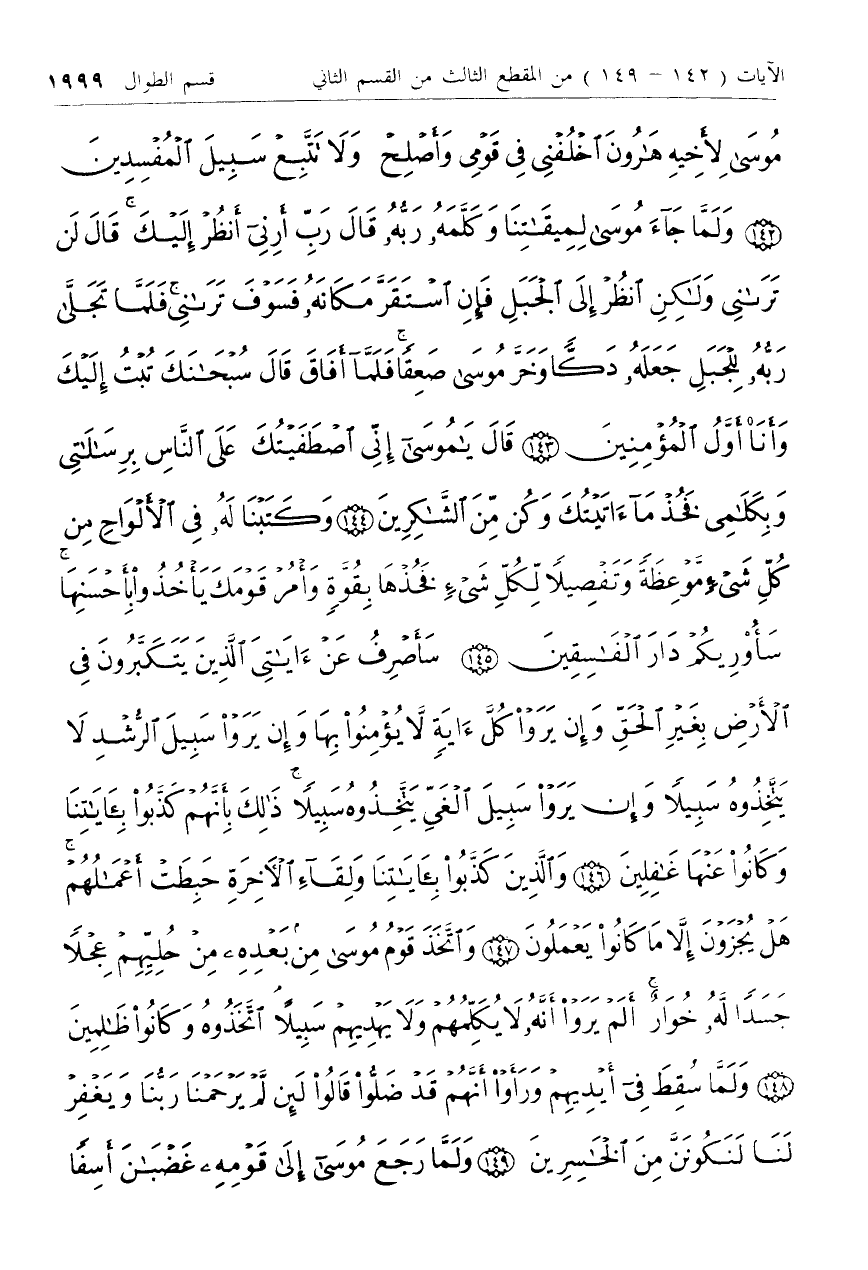 الآيات ( ١٤٢ – ١٤٩ ) من المقطع الثالث من القسم الثاني قسم الطوال ١٩٩٩
مُوسَىٰ لِأَخِيهِ هَٰرُونَ ٱخْلُفْنِى فِى قَوْمِى وَأَصْلِحْ وَلَا تَتَّبِعْ سَبِيلَ ٱلْمُفْسِدِينَ
١٤٢ وَلَمَّا جَآءَ مُوسَىٰ لِمِيقَٰتِنَا وَكَلَّمَهُۥ رَبُّهُۥ قَالَ رَبِّ أَرِنِىٓ أَنظُرْ إِلَيْكَ ۚ قَالَ لَن
تَرَىٰنِى وَلَٰكِنِ ٱنظُرْ إِلَى ٱلْجَبَلِ فَإِنِ ٱسْتَقَرَّ مَكَانَهُۥ فَسَوْفَ تَرَىٰنِى ۚ فَلَمَّا تَجَلَّىٰ
رَبُّهُۥ لِلْجَبَلِ جَعَلَهُۥ دَكًّا وَخَرَّ مُوسَىٰ صَعِقًا ۚ فَلَمَّآ أَفَاقَ قَالَ سُبْحَٰنَكَ تُبْتُ إِلَيْكَ
وَأَنَا۠ أَوَّلُ ٱلْمُؤْمِنِينَ ١٤٣ قَالَ يَٰمُوسَىٰٓ إِنِّى ٱصْطَفَيْتُكَ عَلَى ٱلنَّاسِ بِرِسَٰلَٰتِى
وَبِكَلَٰمِى فَخُذْ مَآ ءَاتَيْتُكَ وَكُن مِّنَ ٱلشَّٰكِرِينَ ١٤٤ وَكَتَبْنَا لَهُۥ فِى ٱلْأَلْوَاحِ مِن
كُلِّ شَىْءٍ مَّوْعِظَةً وَتَفْصِيلًا لِّكُلِّ شَىْءٍ فَخُذْهَا بِقُوَّةٍ وَأْمُرْ قَوْمَكَ يَأْخُذُوا۟ بِأَحْسَنِهَا ۚ
سَأُو۟رِيكُمْ دَارَ ٱلْفَٰسِقِينَ ١٤٥ سَأَصْرِفُ عَنْ ءَايَٰتِىَ ٱلَّذِينَ يَتَكَبَّرُونَ فِى
ٱلْأَرْضِ بِغَيْرِ ٱلْحَقِّ وَإِن يَرَوْا۟ كُلَّ ءَايَةٍ لَّا يُؤْمِنُوا۟ بِهَا وَإِن يَرَوْا۟ سَبِيلَ ٱلرُّشْدِ لَا
يَتَّخِذُوهُ سَبِيلًا وَإِن يَرَوْا۟ سَبِيلَ ٱلْغَىِّ يَتَّخِذُوهُ سَبِيلًا ۚ ذَٰلِكَ بِأَنَّهُمْ كَذَّبُوا۟ بِـَٔايَٰتِنَا
وَكَانُوا۟ عَنْهَا غَٰفِلِينَ ١٤٦ وَٱلَّذِينَ كَذَّبُوا۟ بِـَٔايَٰتِنَا وَلِقَآءِ ٱلْأَخِرَةِ حَبِطَتْ أَعْمَٰلُهُمْ ۚ
هَلْ يُجْزَوْنَ إِلَّا مَا كَانُوا۟ يَعْمَلُونَ ١٤٧ وَٱتَّخَذَ قَوْمُ مُوسَىٰ مِنۢ بَعْدِهِۦ مِنْ حُلِيِّهِمْ عِجْلًا
جَسَدًا لَّهُۥ خُوَارٌ ۚ أَلَمْ يَرَوْا۟ أَنَّهُۥ لَا يُكَلِّمُهُمْ وَلَا يَهْدِيهِمْ سَبِيلًا ۘ ٱتَّخَذُوهُ وَكَانُوا۟ ظَٰلِمِينَ
١٤٨ وَلَمَّا سُقِطَ فِىٓ أَيْدِيهِمْ وَرَأَوْا۟ أَنَّهُمْ قَدْ ضَلُّوا۟ قَالُوا۟ لَئِن لَّمْ يَرْحَمْنَا رَبُّنَا وَيَغْفِرْ
لَنَا لَنَكُونَنَّ مِنَ ٱلْخَٰسِرِينَ ١٤٩ وَلَمَّا رَجَعَ مُوسَىٰٓ إِلَىٰ قَوْمِهِۦ غَضْبَٰنَ أَسِفًا